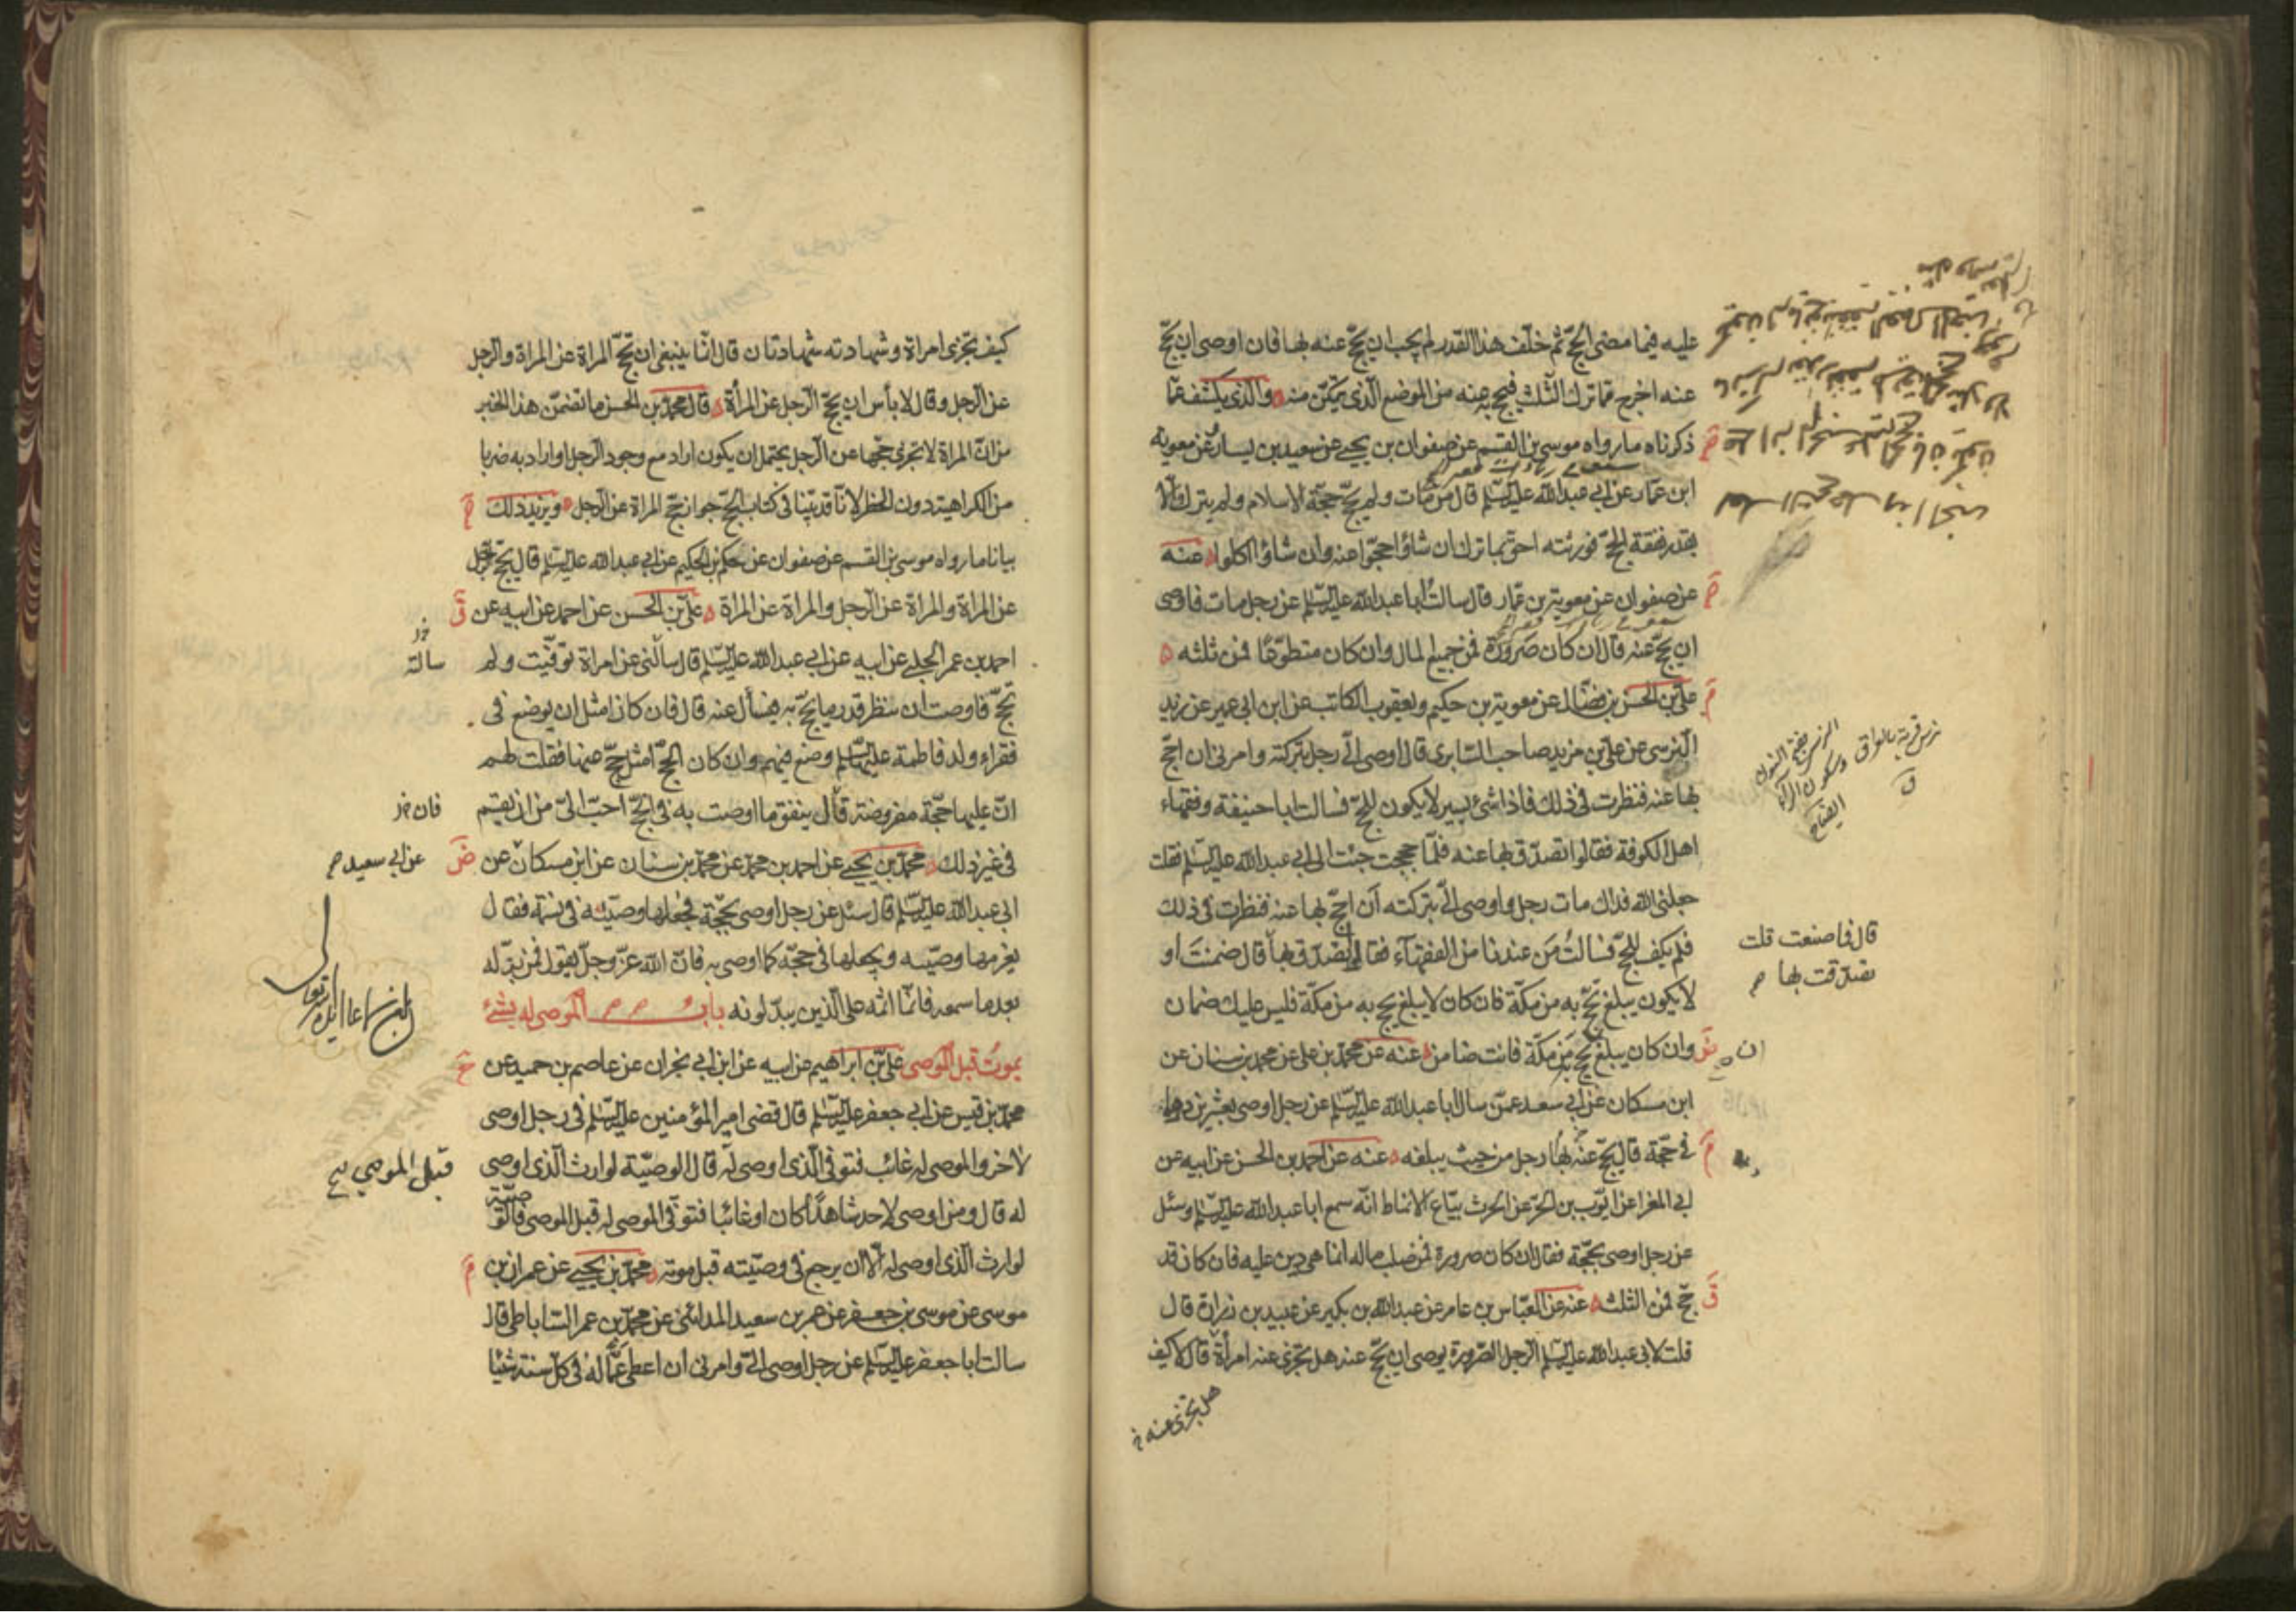 عليه فيما مضى الحجّ ثم خلّف هذا القدر لم يجب ان يحجّ عنه بها فان اوصى ان يحجّ
عنه اخرج مما ترك الثلث فيحج به عنه من الموضع الذى يمكن منه والذى يكشف عمّا
ذكرناه مارواه موسى بن القسم عن صفوان بن يحيى عن سعيد بن يسار عن معوية
ابن عمار عن ابى عبد الله عليه السلم قال من مات ولم يحجّ حجّة الاسلام ولم يترك الّا
بقدر نفقة الحج فورثته احق بما ترك ان شاؤا حجّوا عنه وان شاؤا اكلوا عنه
عن صفوان عن معوية بن عمّار قال سالت ابا عبد الله عليه السلم عن رجل مات فاوصى
ان يحجّ عنه قال ان كان صرورة فمن جميع المال وان كان متطوّعًا فمن ثلثه
علىّ بن الحسن بن فضّال عن معوية بن حكيم ويعقوب الكاتب عن ابن ابى عمير عن زيد
النرسى عن على بن مزيد صاحب السابرى قال اوصى الىّ رجل بتركته وامرنى ان احجّ
بها عنه فنظرت فى ذلك فاذا شئ يسير لا يكون للحجّ فسالت ابا حنيفة وفقهاء
اهل الكوفة فقالوا تصدّق بها عنه فلمّا حججت جئت الى ابى عبد الله عليه السلم فقلت
جعلنى الله فداك مات رجل واوصى الىّ بتركته ان احجّ بها عنه فنظرت فى ذلك
فلم يكف للحجّ فسالتُ مَن عندنا من الفقهآء فقالوا تصدّق بها قال ضمنتَ او
لا يكون يبلغ يحجّ به من مكّة فان كان لا يبلغ يحج به من مكّة فليس عليك ضمان
وان كان يبلغ يحج به من مكّة فانت ضامن عنه عن محمّد بن على عن محمد بن سنان عن
ابن مسكان عن ابى سعيد عمّن سال ابا عبد الله عليه السلم عن رجل اوصى بعشرين درهما
فى حجّة قال يحجّ عنه بها رجل من حيث يبلغه عنه عن احمد بن الحسن عن ابيه عن
ابى المغرا عن ايّوب بن الحرّ عن الحرث بيّاع الانماط انّه سمع ابا عبد الله عليه السلم وسئل
عن رجل اوصى بحجّة فقال ان كان صرورة فمن صلب ماله انما هى دين عليه فان كان قد
حجّ فمن الثلث عنه عن العبّاس بن عامر عن عبد الله بن بكير عن عبيد بن زرارة قال
قلت لابى عبد الله عليه السلم الرجل الصرورة يوصى ان يحجّ عنه هل تجزى عنه امرأة قال لا كيف
النرسى بفتح النون
وسكون الراء
نرس قرية بالعراق
ق
قال فما صنعت قلت
تصدّقت بها
ان
هل تجزى عنه
كيف تجزى امراة وشهادته شهادتان قال انّما ينبغى ان تحجّ المراة عن المراة والرجل
عن الرجل وقال لا بأس ان يحجّ الرجل عن المرأة قال محمّد بن الحسن ما تضمّن هذا الخبر
من انّ المراة لا تجزى حجّها عن الرجل يحتمل ان يكون اراد مع وجود الرجل او اراد به ضربا
من الكراهية دون الحظر لانّا قد بيّنا فى كتاب الحجّ جواز حجّ المراة عن الرجل ويزيد ذلك
بيانا مارواه موسى بن القسم عن صفوان عن حكم بن الحكيم عن ابى عبد الله عليه السلم قال يحجّ الرجل
عن المراة والمراة عن الرجل والمراة عن المراة علىّ بن الحسن عن احمد عن ابيه عن
احمد بن عمر الحلبى عن ابيه عن ابى عبد الله عليه السلم قال سألنى عن امراة توفّيت ولم
تحجّ فاوصت ان ينظر قدر ما يحجّ به فسأل عنه قال فان كان امثل ان يوضع فى
فقراء ولد فاطمة عليها السلم وضع فيهم وان كان الحجّ امثل حجّ عنها فقلت لهم
انّ عليها حجّة مفروضة قال ينفق ما اوصت به فى الحجّ احبّ الىّ من ان يقسم
فى غير ذلك محمّد بن يحيى عن احمد بن محمّد عن محمّد بن سنان عن ابن مسكان عن
ابى عبد الله عليه السلم قال سئل عن رجل اوصى بحجّة فجعلها وصيّه فى نسمة فقال
يغرمها وصيّه ويجعلها فى حجّه كما اوصى به فانّ الله عزّ وجلّ يقول فمن بدّله
بعد ما سمعه فانّما اثمه على الّذين يبدّلونه باب الموصى له بشئ
يموت قبل الموصى علىّ بن ابراهيم عن ابيه عن ابن ابى نجران عن عاصم بن حميد عن
محمّد بن قيس عن ابى جعفر عليه السلم قال قضى امير المؤمنين عليه السلم فى رجل اوصى
لاخر والموصى له غائب فتوفى الّذى اوصى له قال الوصيّة لوارث الّذى اوصى
له قال ومن اوصى لاحد شاهدًا كان او غائبا فتوفّى الموصى له قبل الموصى فالوصيّة
لوارث الّذى اوصى له الّا ان يرجع فى وصيّته قبل موته محمّد بن يحيى عن عمران بن
موسى عن موسى بن جعفر عن عمر بن سعيد المدائنى عن محمّد بن عمر الساباطى قال
سالت ابا جعفر عليه السلم عن رجل اوصى الىّ وامرنى ان اعطى عمّا له فى كلّ سنة شيئا
سالته
فان
عن ابى سعيد
بلغ
قبل الموصى